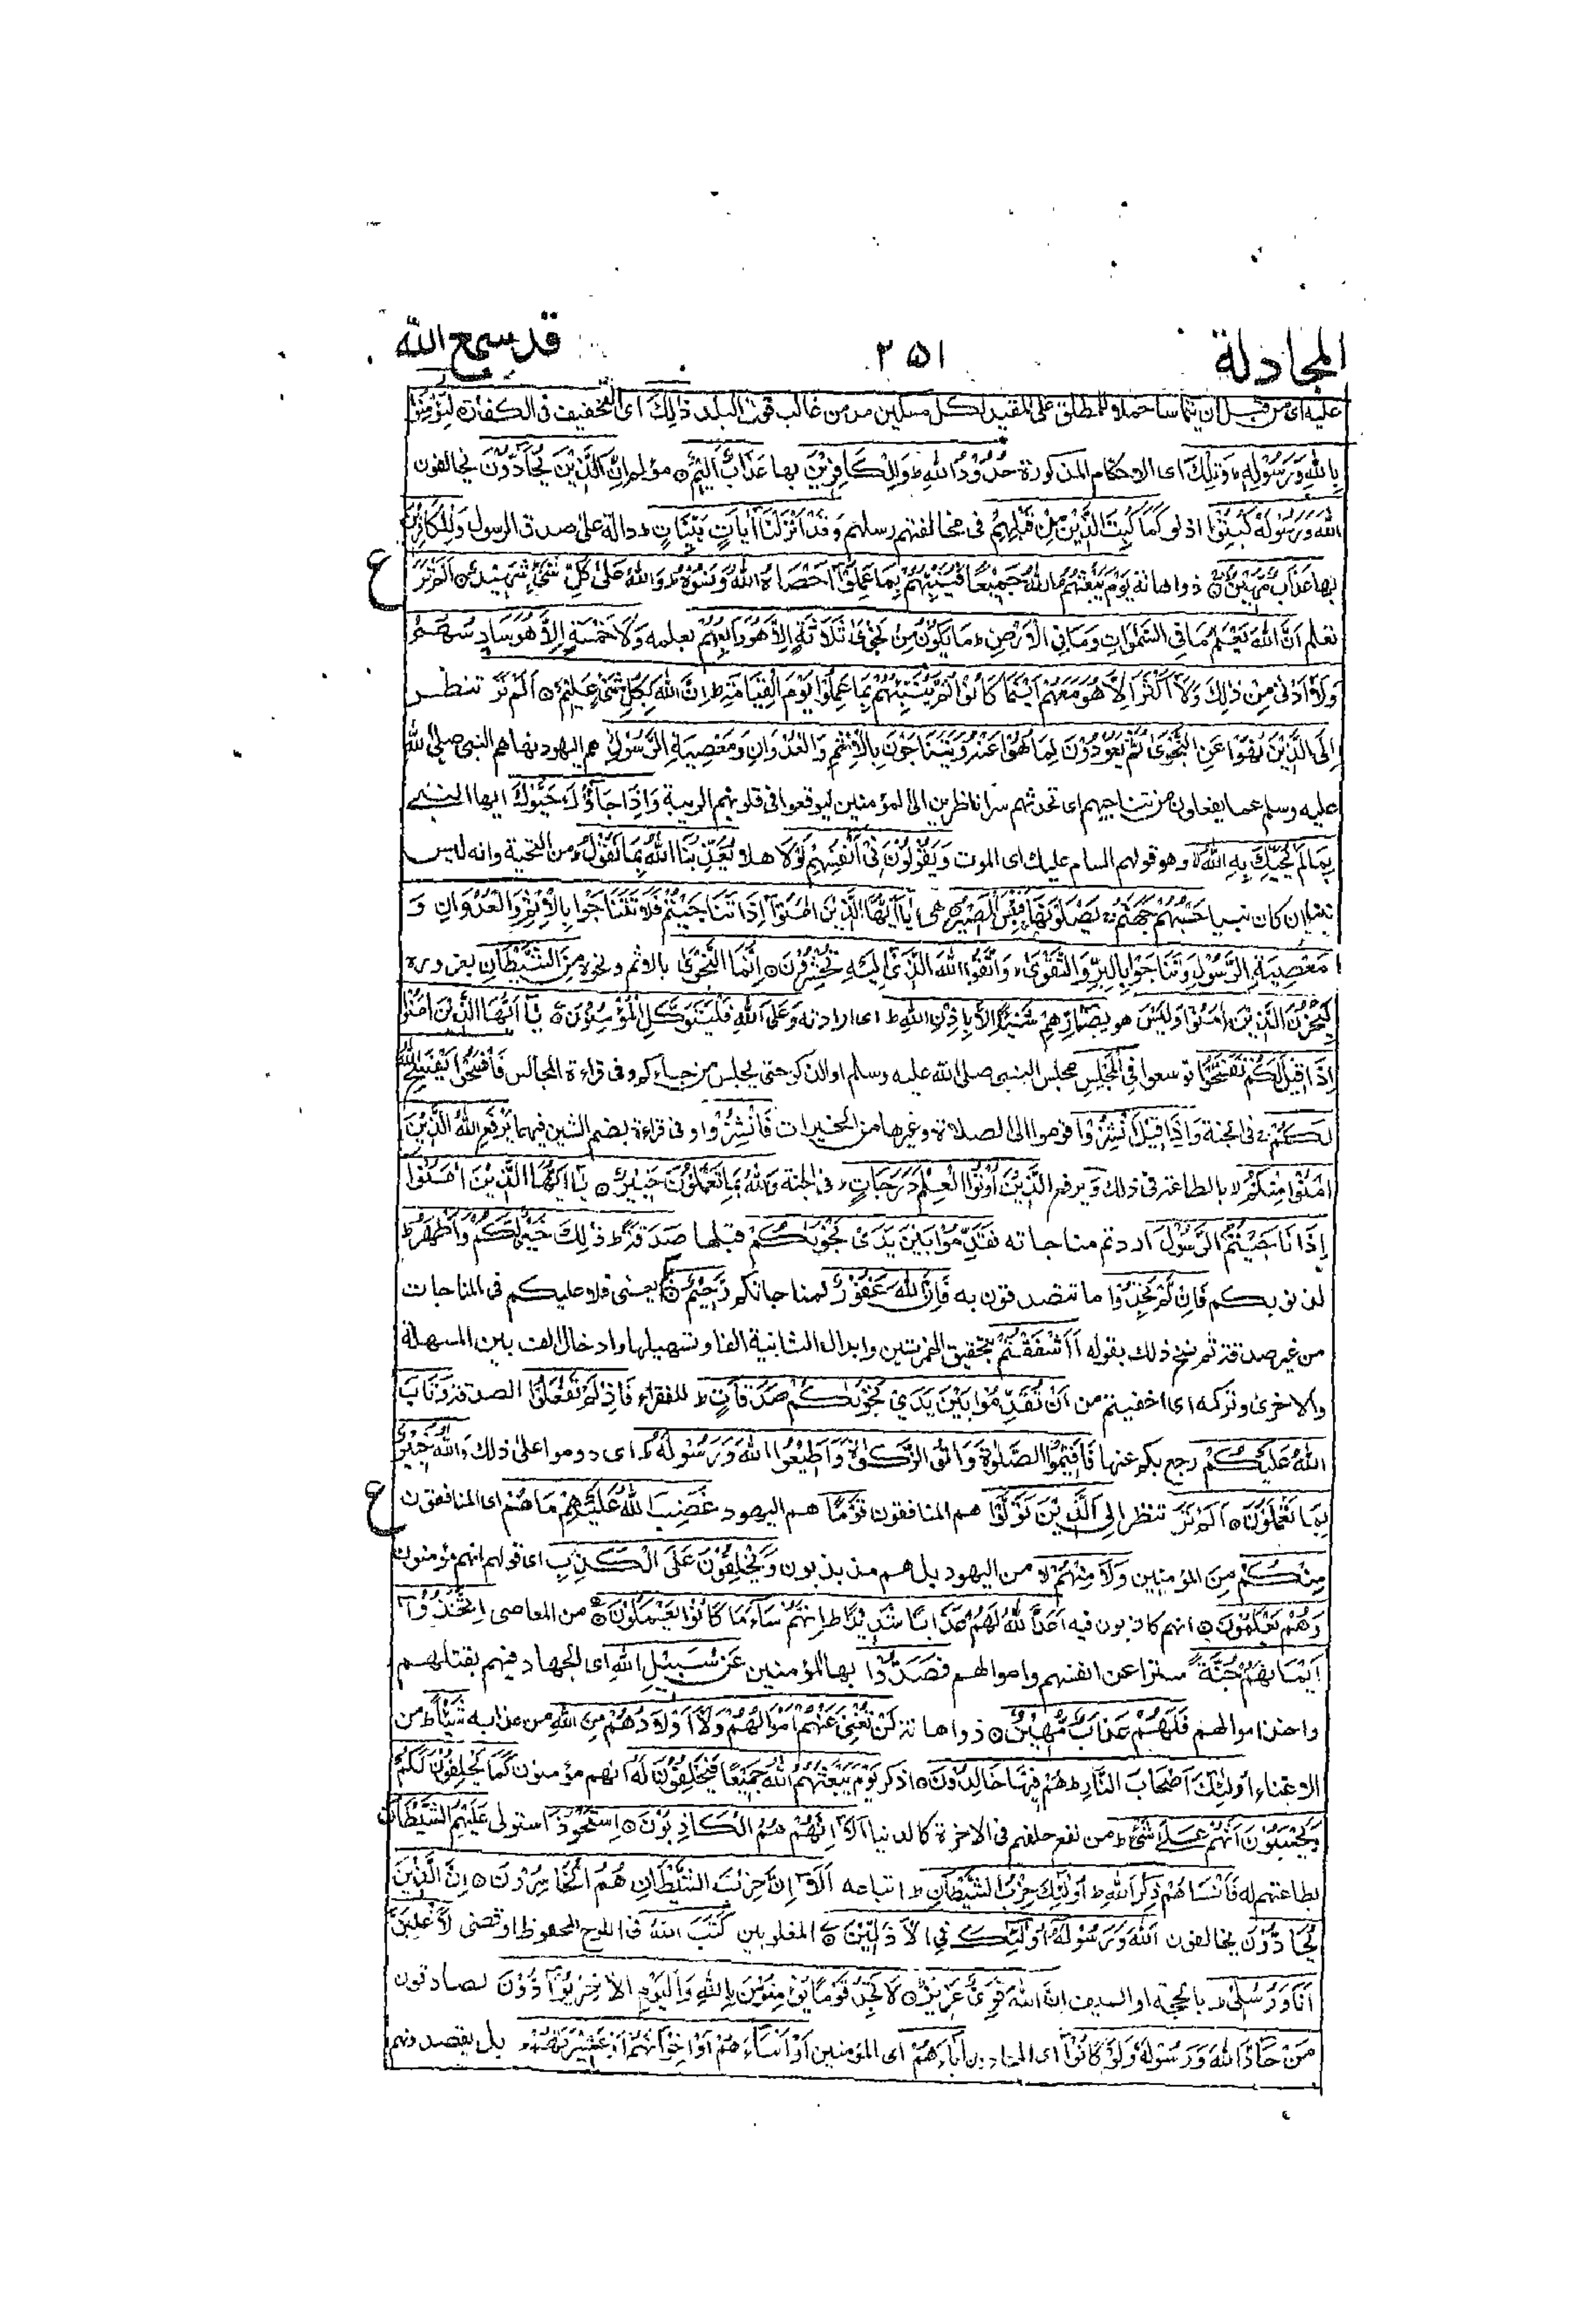 المجادلة ٢٥١ قد سمع الله
عليه اى من قبل ان يتماسا حملا للمطلق على المقيد لكل مسكين مد من غالب قوت البلد ذٰلِكَ اى التخفيف فى الكفارة لِتُؤْمِنُوْا
بِاللّٰهِ وَرَسُوْلِهٖ ؕ وَتِلْكَ اى الاحكام المذكورة حُدُوْدُ اللّٰهِ ؕ وَلِلْكَافِرِيْنَ بها عَذَابٌ اَلِيْمٌ ○ مؤلم اِنَّ الَّذِيْنَ يُحَآدُّوْنَ يخالفون
اللّٰهَ وَرَسُوْلَهٗ كُبِتُوْا اذلوا كَمَا كُبِتَ الَّذِيْنَ مِنْ قَبْلِهِمْ فى مخالفتهم رسلهم وَقَدْ اَنْزَلْنَا اٰيَاتٍ بَيِّنَاتٍ ؕ دالة على صدق الرسول وَلِلْكَافِرِيْنَ
بها عَذَابٌ مُّهِيْنٌ ○ ذو اهانة يَوْمَ يَبْعَثُهُمُ اللّٰهُ جَمِيْعًا فَيُنَبِّئُهُمْ بِمَا عَمِلُوْا ؕ اَحْصَاهُ اللّٰهُ وَنَسُوْهُ ؕ وَاللّٰهُ عَلٰى كُلِّ شَيْءٍ شَهِيْدٌ ○ اَلَمْ تَرَ ع
تعلم اَنَّ اللّٰهَ يَعْلَمُ مَا فِى السَّمٰوَاتِ وَمَا فِى الْاَرْضِ ؕ مَا يَكُوْنُ مِنْ نَّجْوٰى ثَلَاثَةٍ اِلَّا هُوَ رَابِعُهُمْ بعلمه وَلَا خَمْسَةٍ اِلَّا هُوَ سَادِسُهُمْ
وَلَا اَدْنٰى مِنْ ذٰلِكَ وَلَا اَكْثَرَ اِلَّا هُوَ مَعَهُمْ اَيْنَمَا كَانُوْا ۚ ثُمَّ يُنَبِّئُهُمْ بِمَا عَمِلُوْا يَوْمَ الْقِيَامَةِ ؕ اِنَّ اللّٰهَ بِكُلِّ شَيْءٍ عَلِيْمٌ ○ اَلَمْ تَرَ تنظر
اِلَى الَّذِيْنَ نُهُوْا عَنِ النَّجْوٰى ثُمَّ يَعُوْدُوْنَ لِمَا نُهُوْا عَنْهُ وَيَتَنَاجَوْنَ بِالْاِثْمِ وَالْعُدْوَانِ وَمَعْصِيَةِ الرَّسُوْلِ ؗ هم اليهود نهاهم النبى صلى الله
عليه وسلم عما يفعلون من تناجيهم اى تحدثهم سرا ناظرين الى المؤمنين ليوقعوا فى قلوبهم الريبة وَاِذَا جَآؤُكَ حَيَّوْكَ ايها النبى
بِمَا لَمْ يُحَيِّكَ بِهِ اللّٰهُ ۙ وهو قولهم السام عليك اى الموت وَيَقُوْلُوْنَ فِيْ اَنْفُسِهِمْ لَوْلَا هلا يُعَذِّبُنَا اللّٰهُ بِمَا نَقُوْلُ ؕ من التحية وانه ليس
بنبى ان كان نبيا حَسْبُهُمْ جَهَنَّمُ ۚ يَصْلَوْنَهَا ۚ فَبِئْسَ الْمَصِيْرُ ○ هى يٰاَيُّهَا الَّذِيْنَ اٰمَنُوْا اِذَا تَنَاجَيْتُمْ فَلَا تَتَنَاجَوْا بِالْاِثْمِ وَالْعُدْوَانِ وَ
مَعْصِيَةِ الرَّسُوْلِ وَتَنَاجَوْا بِالْبِرِّ وَالتَّقْوٰى ؕ وَاتَّقُوا اللّٰهَ الَّذِيْ اِلَيْهِ تُحْشَرُوْنَ ○ اِنَّمَا النَّجْوٰى بالاثم ونحوه مِنَ الشَّيْطَانِ بغروره
لِيَحْزُنَ الَّذِيْنَ اٰمَنُوْا وَلَيْسَ هو بِضَآرِّهِمْ شَيْئًا اِلَّا بِاِذْنِ اللّٰهِ ؕ اى ارادته وَعَلَى اللّٰهِ فَلْيَتَوَكَّلِ الْمُؤْمِنُوْنَ ○ يٰاَيُّهَا الَّذِيْنَ اٰمَنُوْا
اِذَا قِيْلَ لَكُمْ تَفَسَّحُوْا توسعوا فِى الْمَجْلِسِ مجلس النبى صلى الله عليه وسلم او الذكر حتى يجلس من جاءكم وفى قراءة المجالس فَافْسَحُوْا يَفْسَحِ اللّٰهُ
لَكُمْ ۚ فى الجنة وَاِذَا قِيْلَ انْشُزُوْا قوموا الى الصلاة وغيرها من الخيرات فَانْشُزُوْا وفى قراءة بضم الشين فيهما يَرْفَعِ اللّٰهُ الَّذِيْنَ
اٰمَنُوْا مِنْكُمْ ۙ بالطاعة فى ذلك وَ يرفع الَّذِيْنَ اُوْتُوا الْعِلْمَ دَرَجَاتٍ ؕ فى الجنة وَاللّٰهُ بِمَا تَعْمَلُوْنَ خَبِيْرٌ ○ يٰاَيُّهَا الَّذِيْنَ اٰمَنُوْا
اِذَا نَاجَيْتُمُ الرَّسُوْلَ اردتم مناجاته فَقَدِّمُوْا بَيْنَ يَدَيْ نَجْوٰىكُمْ قبلها صَدَقَةً ؕ ذٰلِكَ خَيْرٌ لَّكُمْ وَاَطْهَرُ ؕ
لذنوبكم فَاِنْ لَّمْ تَجِدُوْا ما تتصدقون به فَاِنَّ اللّٰهَ غَفُوْرٌ لمناجاتكم رَّحِيْمٌ ○ بكم يعنى فلا عليكم فى المناجات
من غير صدقة ثم نسخ ذلك بقوله ءَاَشْفَقْتُمْ بتحقيق الهمزتين وابدال الثانية الفا وتسهيلها وادخال الف بين المسهلة
والاخرى وتركه اى اخفيتم من اَنْ تُقَدِّمُوْا بَيْنَ يَدَيْ نَجْوٰىكُمْ صَدَقَاتٍ ؕ للفقراء فَاِذْ لَمْ تَفْعَلُوْا الصدقة وَتَابَ
اللّٰهُ عَلَيْكُمْ رجع بكم عنها فَاَقِيْمُوا الصَّلٰوةَ وَاٰتُوا الزَّكٰوةَ وَاَطِيْعُوا اللّٰهَ وَرَسُوْلَهٗ ؕ اى دوموا على ذلك وَاللّٰهُ خَبِيْرٌ
بِمَا تَعْمَلُوْنَ ○ اَلَمْ تَرَ تنظر اِلَى الَّذِيْنَ تَوَلَّوْا هم المنافقون قَوْمًا هم اليهود غَضِبَ اللّٰهُ عَلَيْهِمْ مَا هُمْ اى المنافقون ع
مِنْكُمْ من المؤمنين وَلَا مِنْهُمْ ۙ من اليهود بل هم مذبذبون وَيَحْلِفُوْنَ عَلَى الْكَذِبِ اى قولهم انهم مؤمنون
وَهُمْ يَعْلَمُوْنَ ○ انهم كاذبون فيه اَعَدَّ اللّٰهُ لَهُمْ عَذَابًا شَدِيْدًا ؕ اِنَّهُمْ سَآءَ مَا كَانُوْا يَعْمَلُوْنَ ○ من المعاصى اِتَّخَذُوْا
اَيْمَانَهُمْ جُنَّةً سترا عن انفسهم واموالهم فَصَدُّوْا بها المؤمنين عَنْ سَبِيْلِ اللّٰهِ اى الجهاد فيهم بقتلهم
واخذ اموالهم فَلَهُمْ عَذَابٌ مُّهِيْنٌ ○ ذو اهانة لَنْ تُغْنِيَ عَنْهُمْ اَمْوَالُهُمْ وَلَا اَوْلَادُهُمْ مِنَ اللّٰهِ من عذابه شَيْئًا ؕ من
الاغناء اُولٰئِكَ اَصْحَابُ النَّارِ ؕ هُمْ فِيْهَا خَالِدُوْنَ ○ اذكر يَوْمَ يَبْعَثُهُمُ اللّٰهُ جَمِيْعًا فَيَحْلِفُوْنَ لَهٗ انهم مؤمنون كَمَا يَحْلِفُوْنَ لَكُمْ
وَيَحْسَبُوْنَ اَنَّهُمْ عَلٰى شَيْءٍ ؕ من نفع حلفهم فى الاخرة كالدنيا اَلَا اِنَّهُمْ هُمُ الْكَاذِبُوْنَ ○ اِسْتَحْوَذَ استولى عَلَيْهِمُ الشَّيْطَانُ
بطاعتهم له فَاَنْسَاهُمْ ذِكْرَ اللّٰهِ ؕ اُولٰئِكَ حِزْبُ الشَّيْطَانِ ؕ اتباعه اَلَا اِنَّ حِزْبَ الشَّيْطَانِ هُمُ الْخَاسِرُوْنَ ○ اِنَّ الَّذِيْنَ
يُحَآدُّوْنَ يخالفون اللّٰهَ وَرَسُوْلَهٗ اُولٰئِكَ فِى الْاَذَلِّيْنَ ○ المغلوبين كَتَبَ اللّٰهُ فى اللوح المحفوظ او قضى لَاَغْلِبَنَّ
اَنَا وَرُسُلِيْ ؕ بالحجة او السيف اِنَّ اللّٰهَ قَوِيٌّ عَزِيْزٌ ○ لَا تَجِدُ قَوْمًا يُؤْمِنُوْنَ بِاللّٰهِ وَالْيَوْمِ الْاٰخِرِ يُوَآدُّوْنَ يصادقون
مَنْ حَآدَّ اللّٰهَ وَرَسُوْلَهٗ وَلَوْ كَانُوْا اى المحادون اٰبَآءَهُمْ اى المؤمنين اَوْ اَبْنَآءَهُمْ اَوْ اِخْوَانَهُمْ اَوْ عَشِيْرَتَهُمْ ؕ بل يقصدونهم